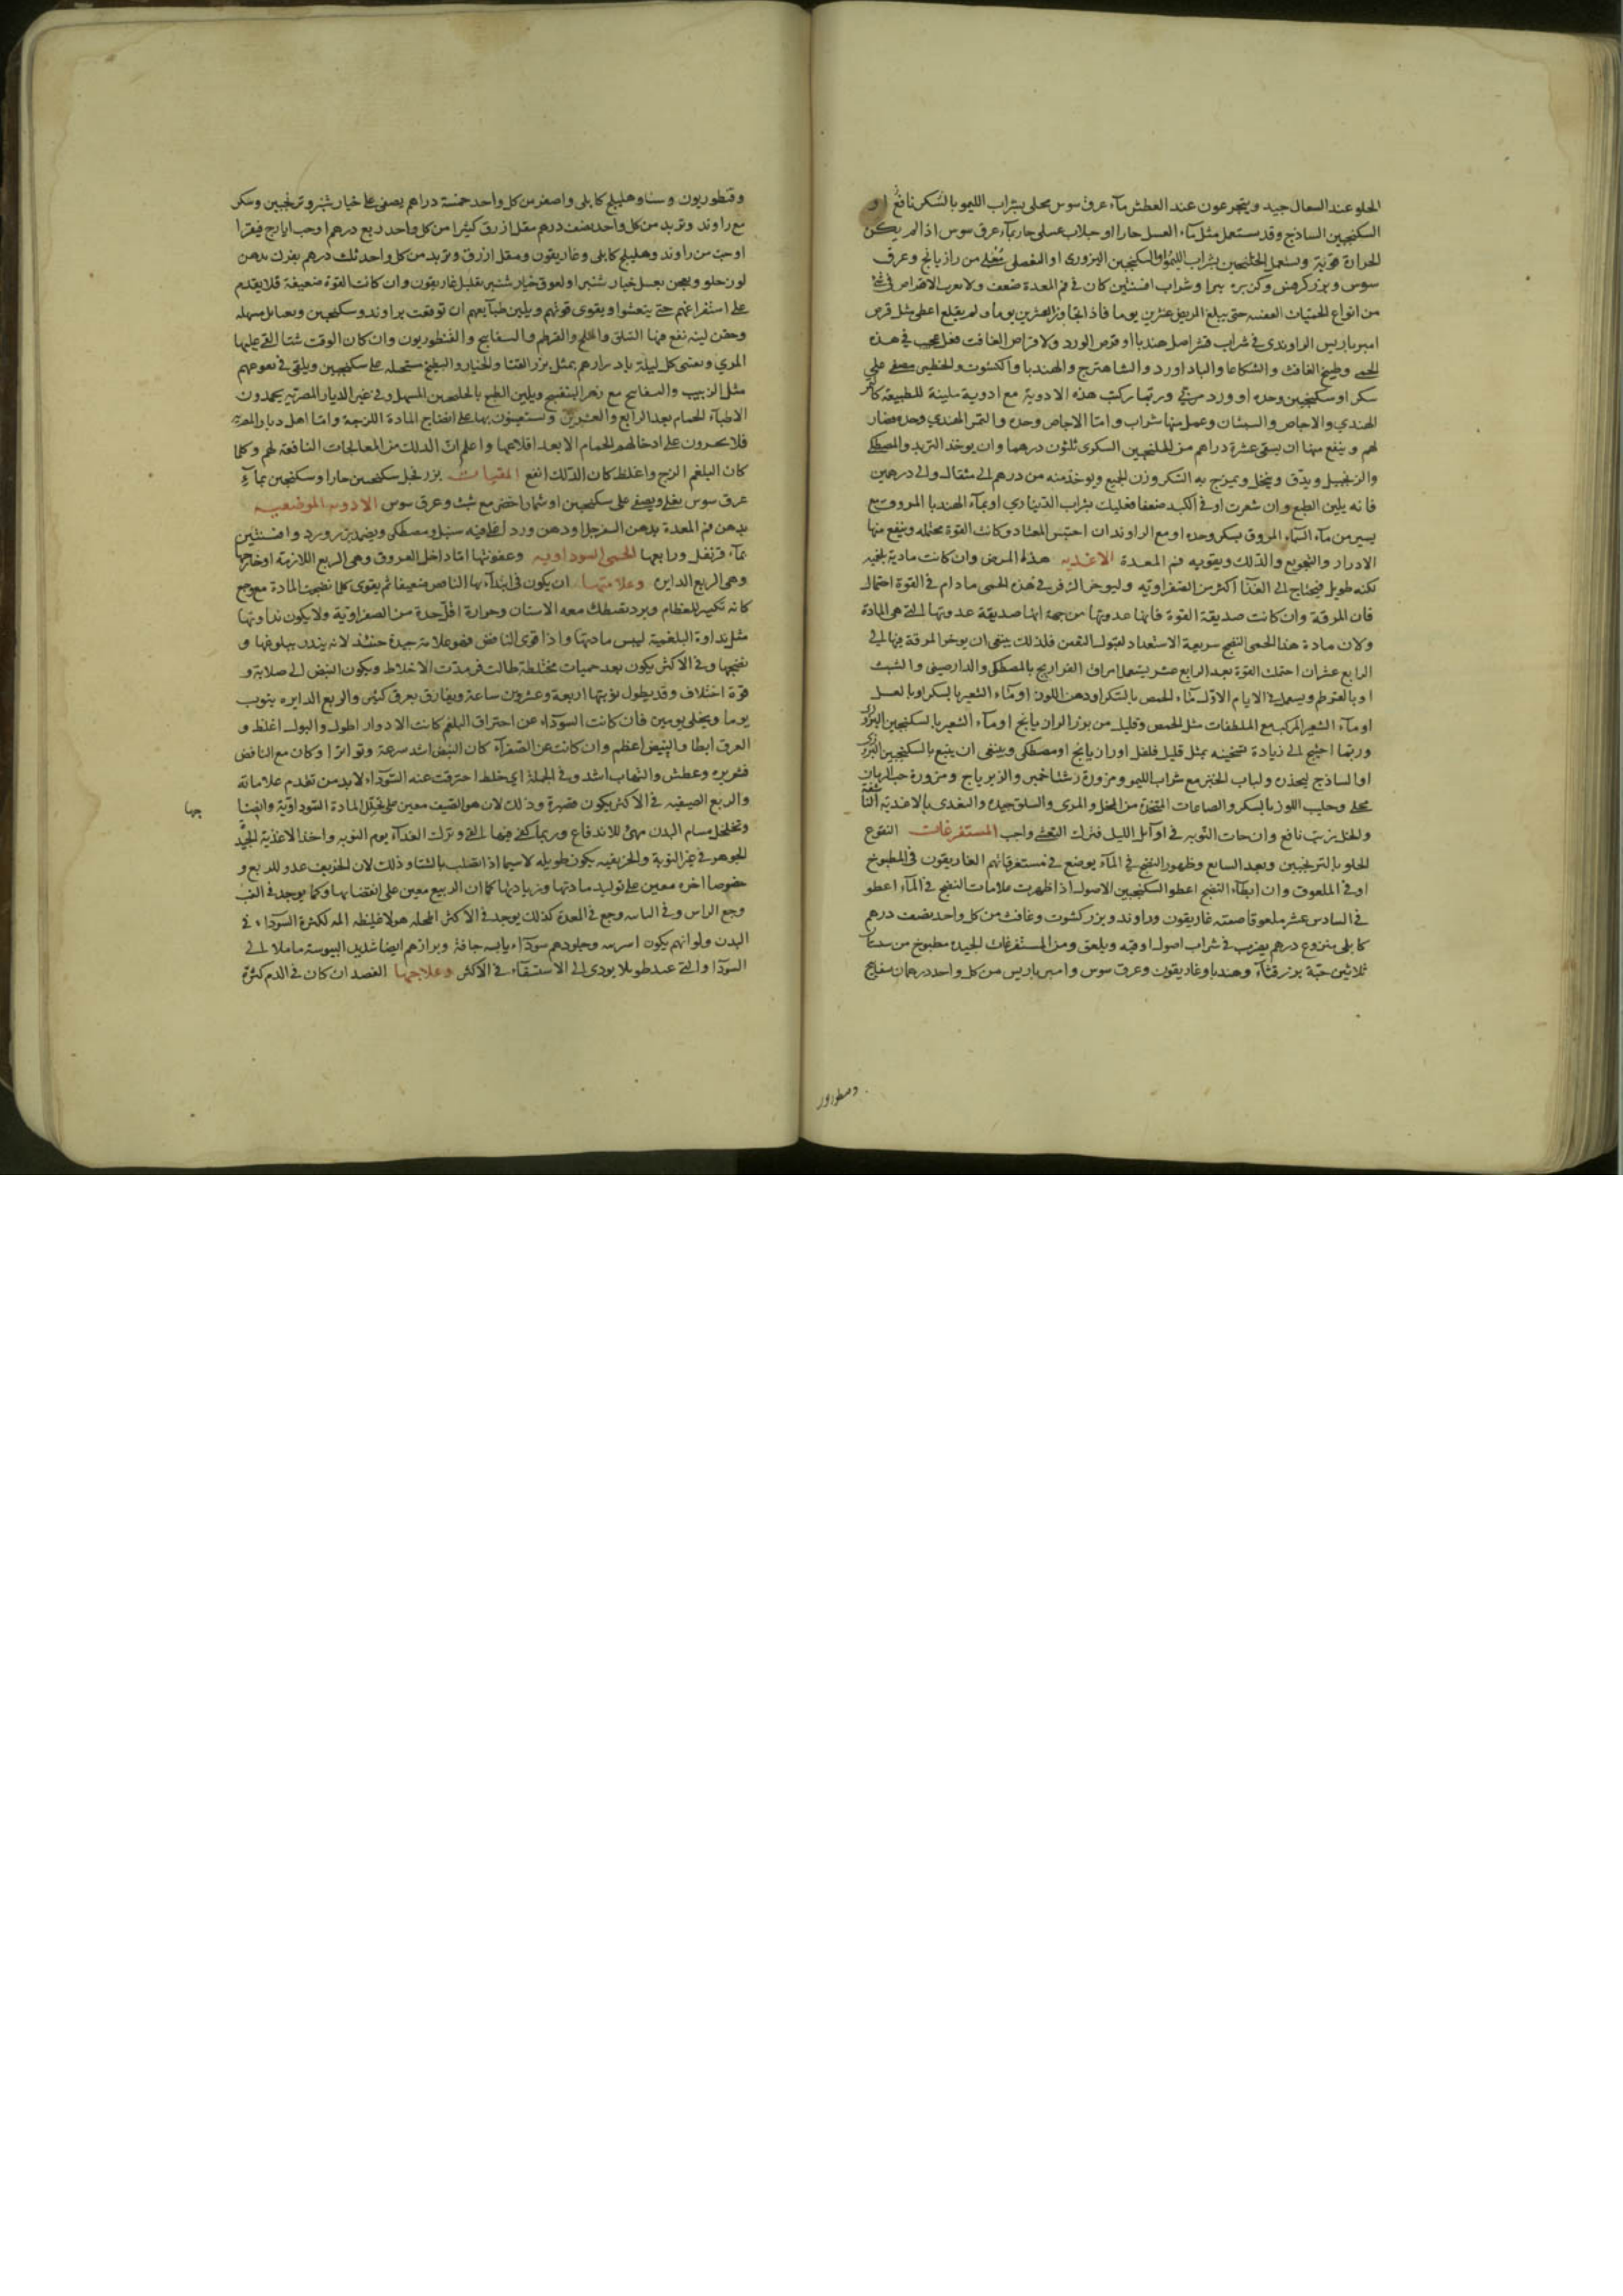 الحلو عند السعال جيد ويتجرعون عند العطش مآء عرق سوس محلى بشراب الليمو بالسكر نافع او
السكنجبين الساذج وقد يستعمل مثل مآء العسل حارا او جلاب عسلى حار بمآء عرق سوس اذا لم يكن
الحرارة قوية ويستعمل الخلنجبين بشراب الليمو او السكنجبين البزورى او العنصلى مغلى من رازيانج وعرق
سوس وبزر كرفس وكزبرة بير وشراب افسنتين كان فى فم المعدة ضعف ولا الاقراص فى شئ
من انواع الحميات العفنه حتى يبلغ المريض عشرين يوما فاذا تجاوز العشرين يوما ولم يقلع اعطى مثل قرص
امبرباريس الراوندى فى شراب قشر اصل هندبا او قرص الورد ولاقراص الغافت فعل عجيب فى هذه
الحمى وطبيخ الغافث والشكاعا والباد اورد والشاهترج والهندبا واكشوث والخطمى مصفى على
سكر او سكنجبين وحده او ورد مربى وربما ركب هذه الادوية مع ادوية ملينة للطبيعة كالتمر
الهندي والاجاص والسبستان وعمل منها شراب واما الاجاص وحده والتمر الهندي وحده مضار
لهم وينفع منها ان يسقى عشرة دراهم من الخلنجبين السكرى ثلثون درهما وان يوخذ التربد والمصطكى
والزنجبيل ويدق وينخل ويمزج به السكر وزن الجميع ويوخذ منه من درهم الى مثقال والى درهمين
فانه يلين الطبع وان شعرت اوفى الكبد ضعفا فعليك بشراب الديناري او بمآء الهندبا المروق مع
يسير من مآء المروق بسكر وحده او مع الراوند ان احتبس المعتاد وكانت القوة محتمله وينفع منها
الادرار والتجويع والدلك وبقويه فم المعدة الاغذيه هذه المرض وان كانت مادية بلغميه
لكنه طويل فيحتاج الى الغذا اكثر من الصفراويه وليوخر الزفر فى هذه الحمى ما دام فى القوة احتمال
فان المرقة وان كانت صديقة القوة فانها عدوتها من جهة انها صديقة عدوتها التى هى المادة
ولان مادة هذا الحمى النضج سريعة الاستعداد لقبول التعفن فلذلك ينبغى ان يوخر المرقة فيها الى
الرابع عشر ان احتمل القوة بعد الرابع عشر يستعمل امراق الفراريج بالمصطكى والدارصينى والشبت
او بالقرطم ويستعمل فى الايام الاول مآء الحمص بالسكر او دهن اللوز او مآء الشعير بالسكر او بالعسل
او مآء الشعير المركب مع الملطفات مثل الحمص وقليل من بزر الرازيانج او مآء الشعير بالسكنجبين البزورى
وربما احتيج الى زيادة تسخينه بمثل قليل فلفل او رازيانج او مصطكى وينبغى ان يتبع بالسكنجبين البزورى
او الساذج ليحذر ولباب الخبز مع شراب الليمو ومزورة رشتا خمير والزيرباج ومزورة حب الرمان
محلى وحليب اللوز بالسكر والصباغات المتخذة من الخل والمرى والسلق جيدة والتغدى بالاغذية
والخل بزيت نافع وان جات النوبه فى اوايل الليل فترك التعشى واجب المستفرغات النقوع
الحلو بالترنجبين وبعد السابع وظهور النضج فى المآء يوضع فى مستفرغاتهم الغاريقون فى المطبوخ
او فى الملعوق وان ابطآء النضج اعطوا السكنجبين الاصول اذا ظهرت علامات النضج فى المآء اعطو
فى السادس عشر ملعوقا صفته غاريقون وراوند وبزر كشوت وغافث من كل واحد نصف درهم
كابلى منزوع درهم يضرب فى شراب اصول اوقيه ويلعق ومن المستفرغات الجيده مطبوخ من سبستان
ثلاثين حبة بزر قثآء وهندبا وغاريقون وعرق سوس وامبرباريس من كل واحد درهمان بسفايج
وقنطوريون
وقنطوريون وسنا وهليلج كابلى واصفر من كل واحد خمسة دراهم يصفى على خيار شنبر وترنجبين وسكر
مع راوند وتربد من كل واحد نصف درهم مقل ازرق كثيرا من كل واحد ربع درهم او حب ايارج فيقرا
او حب من راوند وهليلج كابلى وغاريقون ومقل ازرق وتربد من كل واحد ثلث درهم يفرك بدهن
لوز حلو ويعجن بعسل خيار شنبر او لعوق خيار شنبر بقليل غاريقون وان كانت القوة ضعيفة فلا يقدم
على استفراغهم حتى ينتعشوا ويقوى قوتهم ويلين طبآيعهم ان توقفت براوند وسكنجبين وبفتايل مسهله
وحقن لينه نفع فيها السلق والملح والقرطم والبسفايج والقنطوريون وان كان الوقت شتا القى عليها
المري ويعتنى كل ليلة بادرارهم بمثل بزر القثا والخيار والبطيخ مستحلبه على سكنجبين ويلقى فى نقوعهم
مثل الزبيب والبسفايج مع زهر البنفسج ويلين الطبع بالخلنجبين المسهل وفى غير الديار المصرية يحمدون
الاطبآء الحمام بعد الرابع والعشرين ويستعينون بها على انضاج المادة اللزجة واما اهل ديار المصريه
فلا يجسرون على ادخالهم الحمام الا بعد اقلاعها واعلم ان الدلك من المعالجات النافعة لهم وكلما
كان البلغم الزج واغلظ كان الدلك انفع المقيات بزر فجل سكنجبين حارا وسكنجبين بمآء
عرق سوس يغلى ويصفى على سكنجبين او شمار اخضر مع شبث وعرق سوس الادويه الموضعيه
يدهن فم المعدة بدهن السفرجل او دهن ورد اغلى فيه سنبل ومصطكى ويضمد بزر ورد وافسنتين
بمآء قرنفل ورابعها الحمى السوداويه وعفونتها اما داخل العروق وهى الربع اللازمة او خارجها
وهى الربع الدايرة وعلامتها ان يكون فى ابتدآءها الناقض ضعيفا ثم يقوى كلما نضجت المادة مع وجع
كانه تكسير للعظام وبرد تصطك معه الاسنان وحرارة اقل حدة من الصفراوية ولا يكون نداوتها
مثل نداوة البلغمية ليبس مادتها واذا قوى النافض فهو علامة جيدة حينئذ لانه ينذر ببلوغها و
نضجها وفى الاكثر يكون بعد حميات مختلطة طالت فرمدت الاخلاط ويكون النبض الى صلابة و
قوة اختلاف وقد يطول نوبتها اربعة وعشرون ساعة ويفارق بعرق كثير والربع الدايره ينوب
يوما ويخلى يومين فان كانت السوداء عن احتراق البلغم كانت الادوار اطول والبول اغلظ و
العرق ابطا والنبض اعظم وان كانت عن الصفرآء كان النبض اشد سرعة وتواترا وكان مع النافض
قشريره وعطش والتهاب اشد وفى الجملة اي خلط احترقت عنه السودآء لا بد من تقدم علاماته
والربع الصيفيه فى الاكثر يكون قصيرة وذلك لان هو الصيف معين على تحلل المادة السوداوية وايضا
وتخلخل مسام البدن مهئ للاندفاع وربما كفى فيها القى وترك الغدآء يوم النوبه واخذ الاغذية الجيدة
الجوهر فى غير النوبة والخريفيه يكون طويله لاسيما اذا اتصلت بالشتا وذلك لان الخريف عدو للربع و
خصوصا اخره معين على توليد مادتها وزيادتها كما ان الربيع معين على انقضايها وكما يوجد فى الغب
وجع الراس وفى وجع فى المعدة كذلك يوجد فى الاكثر لكثرة السودآء فى
البدن ولوانهم يكون اسمر وجلودهم سودآء يابسه جافة وبرازهم ايضا شديد اليبوسة ما مايلا الى
السودا والتى طويلا يودى الى الاستسقآء فى الاكثر وعلاجها الفصد ان كان فى الدم كثرة